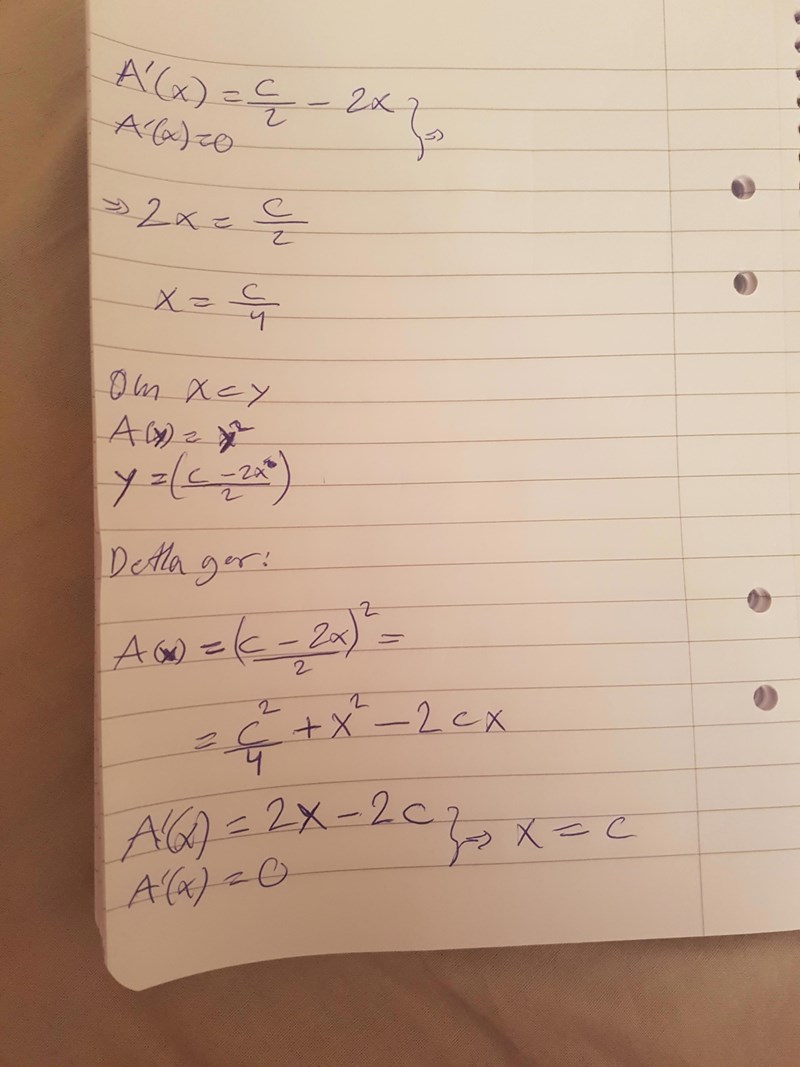 A'(x) = c/2 - 2x } ⇒
A'(x) = 0
⇒ 2x = c/2
x = c/4
Om x = y
A(x) = x²
y = (c - 2x / 2)
Detta ger:
A(x) = (c - 2x / 2)² =
= c²/4 + x² - 2cx
A'(x) = 2x - 2c } ⇒ x = c
A'(x) = 0